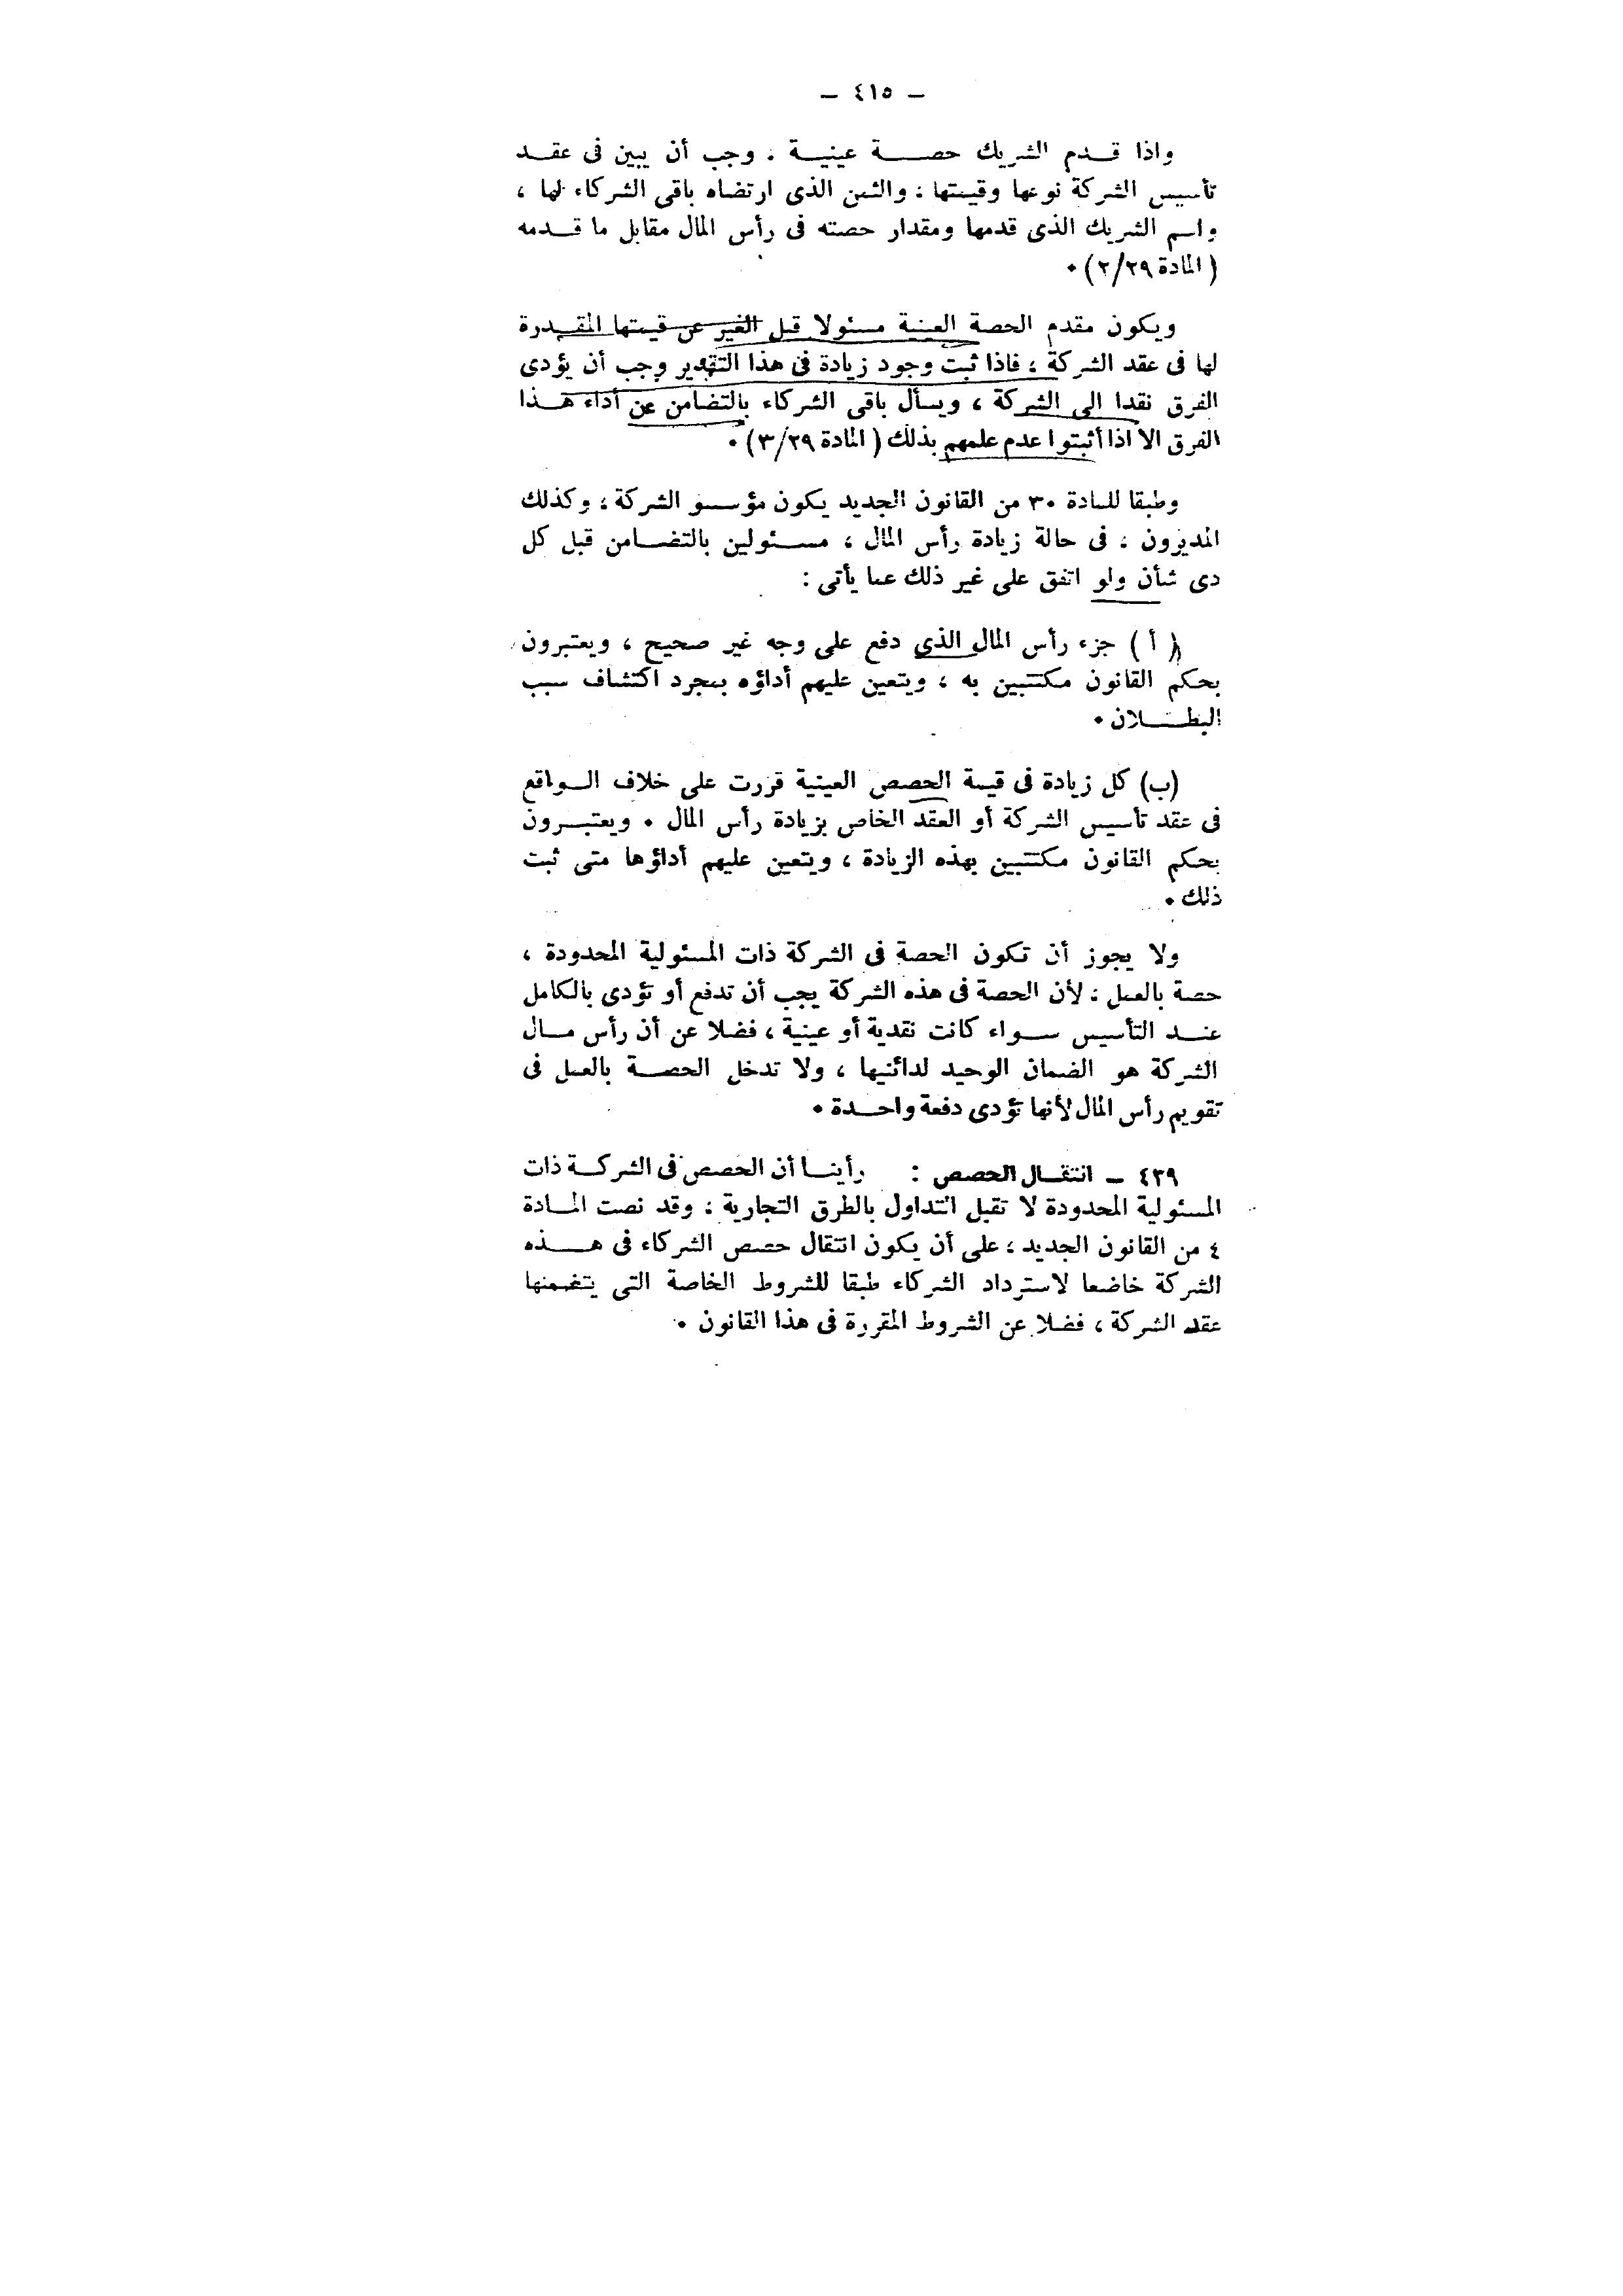 — ٤١٥ —
واذا قدم الشريك حصة عينية ، وجب أن يبين فى عقد
تأسيس الشركة نوعها وقيمتها ، والثمن الذى ارتضاه باقى الشركاء لها ،
واسم الشريك الذى قدمها ومقدار حصته فى رأس المال مقابل ما قدمه
( المادة ٢/٢٩ ) ٠
ويكون مقدم الحصة العينية مسئولا قبل الغير عن قيمتها المقدرة
لها فى عقد الشركة ، فاذا ثبت وجود زيادة فى هذا التقدير وجب أن يؤدى
الفرق نقدا الى الشركة ، ويسأل باقى الشركاء بالتضامن عن أداء هذا
الفرق الا اذا أثبتوا عدم علمهم بذلك ( المادة ٣/٢٩ ) ٠
وطبقا للمادة ٣٠ من القانون الجديد يكون مؤسسو الشركة ، وكذلك
المديرون ، فى حالة زيادة رأس المال ، مسئولين بالتضامن قبل كل
ذى شأن ولو اتفق على غير ذلك عما يأتى :
( أ ) جزء رأس المال الذى دفع على وجه غير صحيح ، ويعتبرون
بحكم القانون مكتتبين به ، ويتعين عليهم أداؤه بمجرد اكتشاف سبب
البطلان ٠
(ب) كل زيادة فى قيمة الحصص العينية قررت على خلاف الواقع
فى عقد تأسيس الشركة أو العقد الخاص بزيادة رأس المال ٠ ويعتبرون
بحكم القانون مكتتبين بهذه الزيادة ، ويتعين عليهم أداؤها متى ثبت
ذلك ٠
ولا يجوز أن تكون الحصة فى الشركة ذات المسئولية المحدودة ،
حصة بالعمل ، لأن الحصة فى هذه الشركة يجب أن تدفع أو تؤدى بالكامل
عند التأسيس سواء كانت نقدية أو عينية ، فضلا عن أن رأس مال
الشركة هو الضمان الوحيد لدائنيها ، ولا تدخل الحصة بالعمل فى
تقويم رأس المال لأنها تؤدى دفعة واحدة ٠
٤٣٩ — انتقال الحصص : رأينا أن الحصص فى الشركة ذات
المسئولية المحدودة لا تقبل التداول بالطرق التجارية ، وقد نصت المادة
٤ من القانون الجديد ، على أن يكون انتقال حصص الشركاء فى هذه
الشركة خاضعا لاسترداد الشركاء طبقا للشروط الخاصة التى يتضمنها
عقد الشركة ، فضلا عن الشروط المقررة فى هذا القانون ٠